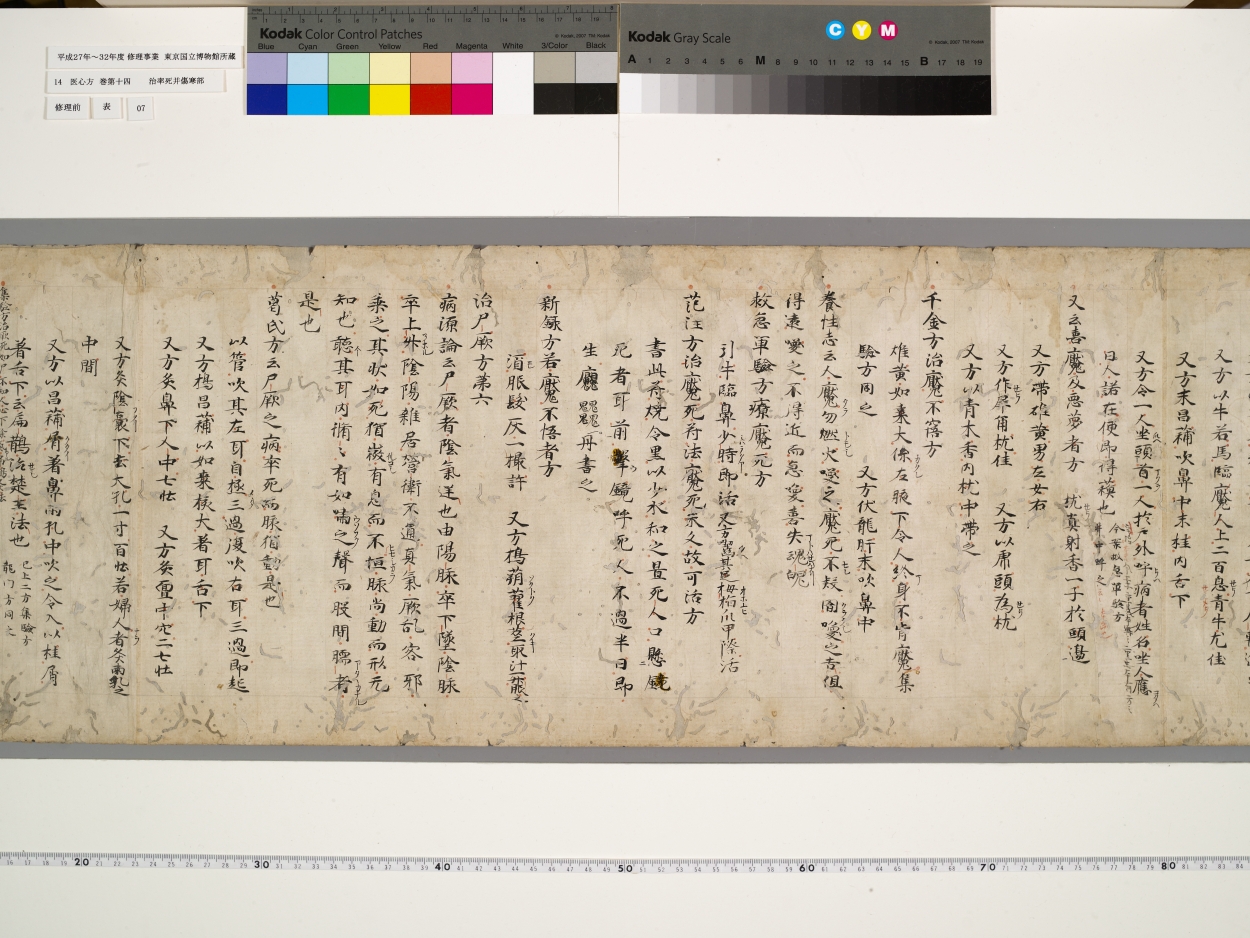 平成27年～32年度 修理事業 東京国立博物館所蔵
14 医心方 巻第十四 治卒死并傷寒部
修理前 表 07
Kodak Color Control Patches
Blue Cyan Green Yellow Red Magenta White 3/Color Black
Kodak Gray Scale
C Y M
A 1 2 3 4 5 6 M 8 9 10 11 12 13 14 15 B 17 18 19
又方以牛若馬臨魘人上二百息青牛尤佳
又方末昌蒲吹鼻中末桂内舌下
又方令一人坐頭首一人於戸外呼病者姓名坐人應
曰人諾在便即得蘇也
又云喜魘及悪夢者方 枕真射香一子於頭邊
又方帯雄黄男左女右
又方作犀角枕佳 又方以虎頭為枕
又方以青木香内枕中帯之
千金方治魘不寤方
雄黄如棗大係左腋下令人終身不肯魘集
験方同之 又方伏龍肝末吹鼻中
養性志云人魘勿燃火喚之魘死不疑闇喚之吉但
得遠喚之不得近而急喚喜失魂魄
救急單驗方療魘死方
引牛臨鼻少時即活
范汪方治魘死符法魘死未久故可活方
書此符焼令黒以少水和之置死人口懸鏡
死者耳前 鏡呼死人不過半日即
生 丹書之
新録方若魘不悟者方
猪脂髪灰一撮許 又方搗
治尸厥方第六
病源論云尸厥者陰氣逆也由陽脉卒下墜陰脉
卒上升陰陽離居營衛不通真氣厥乱客邪
乗之其状如死猶微有息而不恒脉尚動而形无
知也聴其耳内徇々有如嘯之聲而股間 者
是也
葛氏方云尸厥之病卒死而脉猶動是也
以管吹其左耳自極三過復吹右耳三過即起
又方搗昌蒲以如棗核大著耳舌下
又方灸鼻下人中七壮 又方灸 中穴二七壮
又方灸陰嚢下去大孔一寸百壮若婦人者灸兩乳之
中間
又方以昌蒲屑著鼻兩孔中吹之令入以桂屑
著舌下云扁鵲治楚王法也
已上二方集驗方
龍門方同之
20 30 40 50 60 70 80